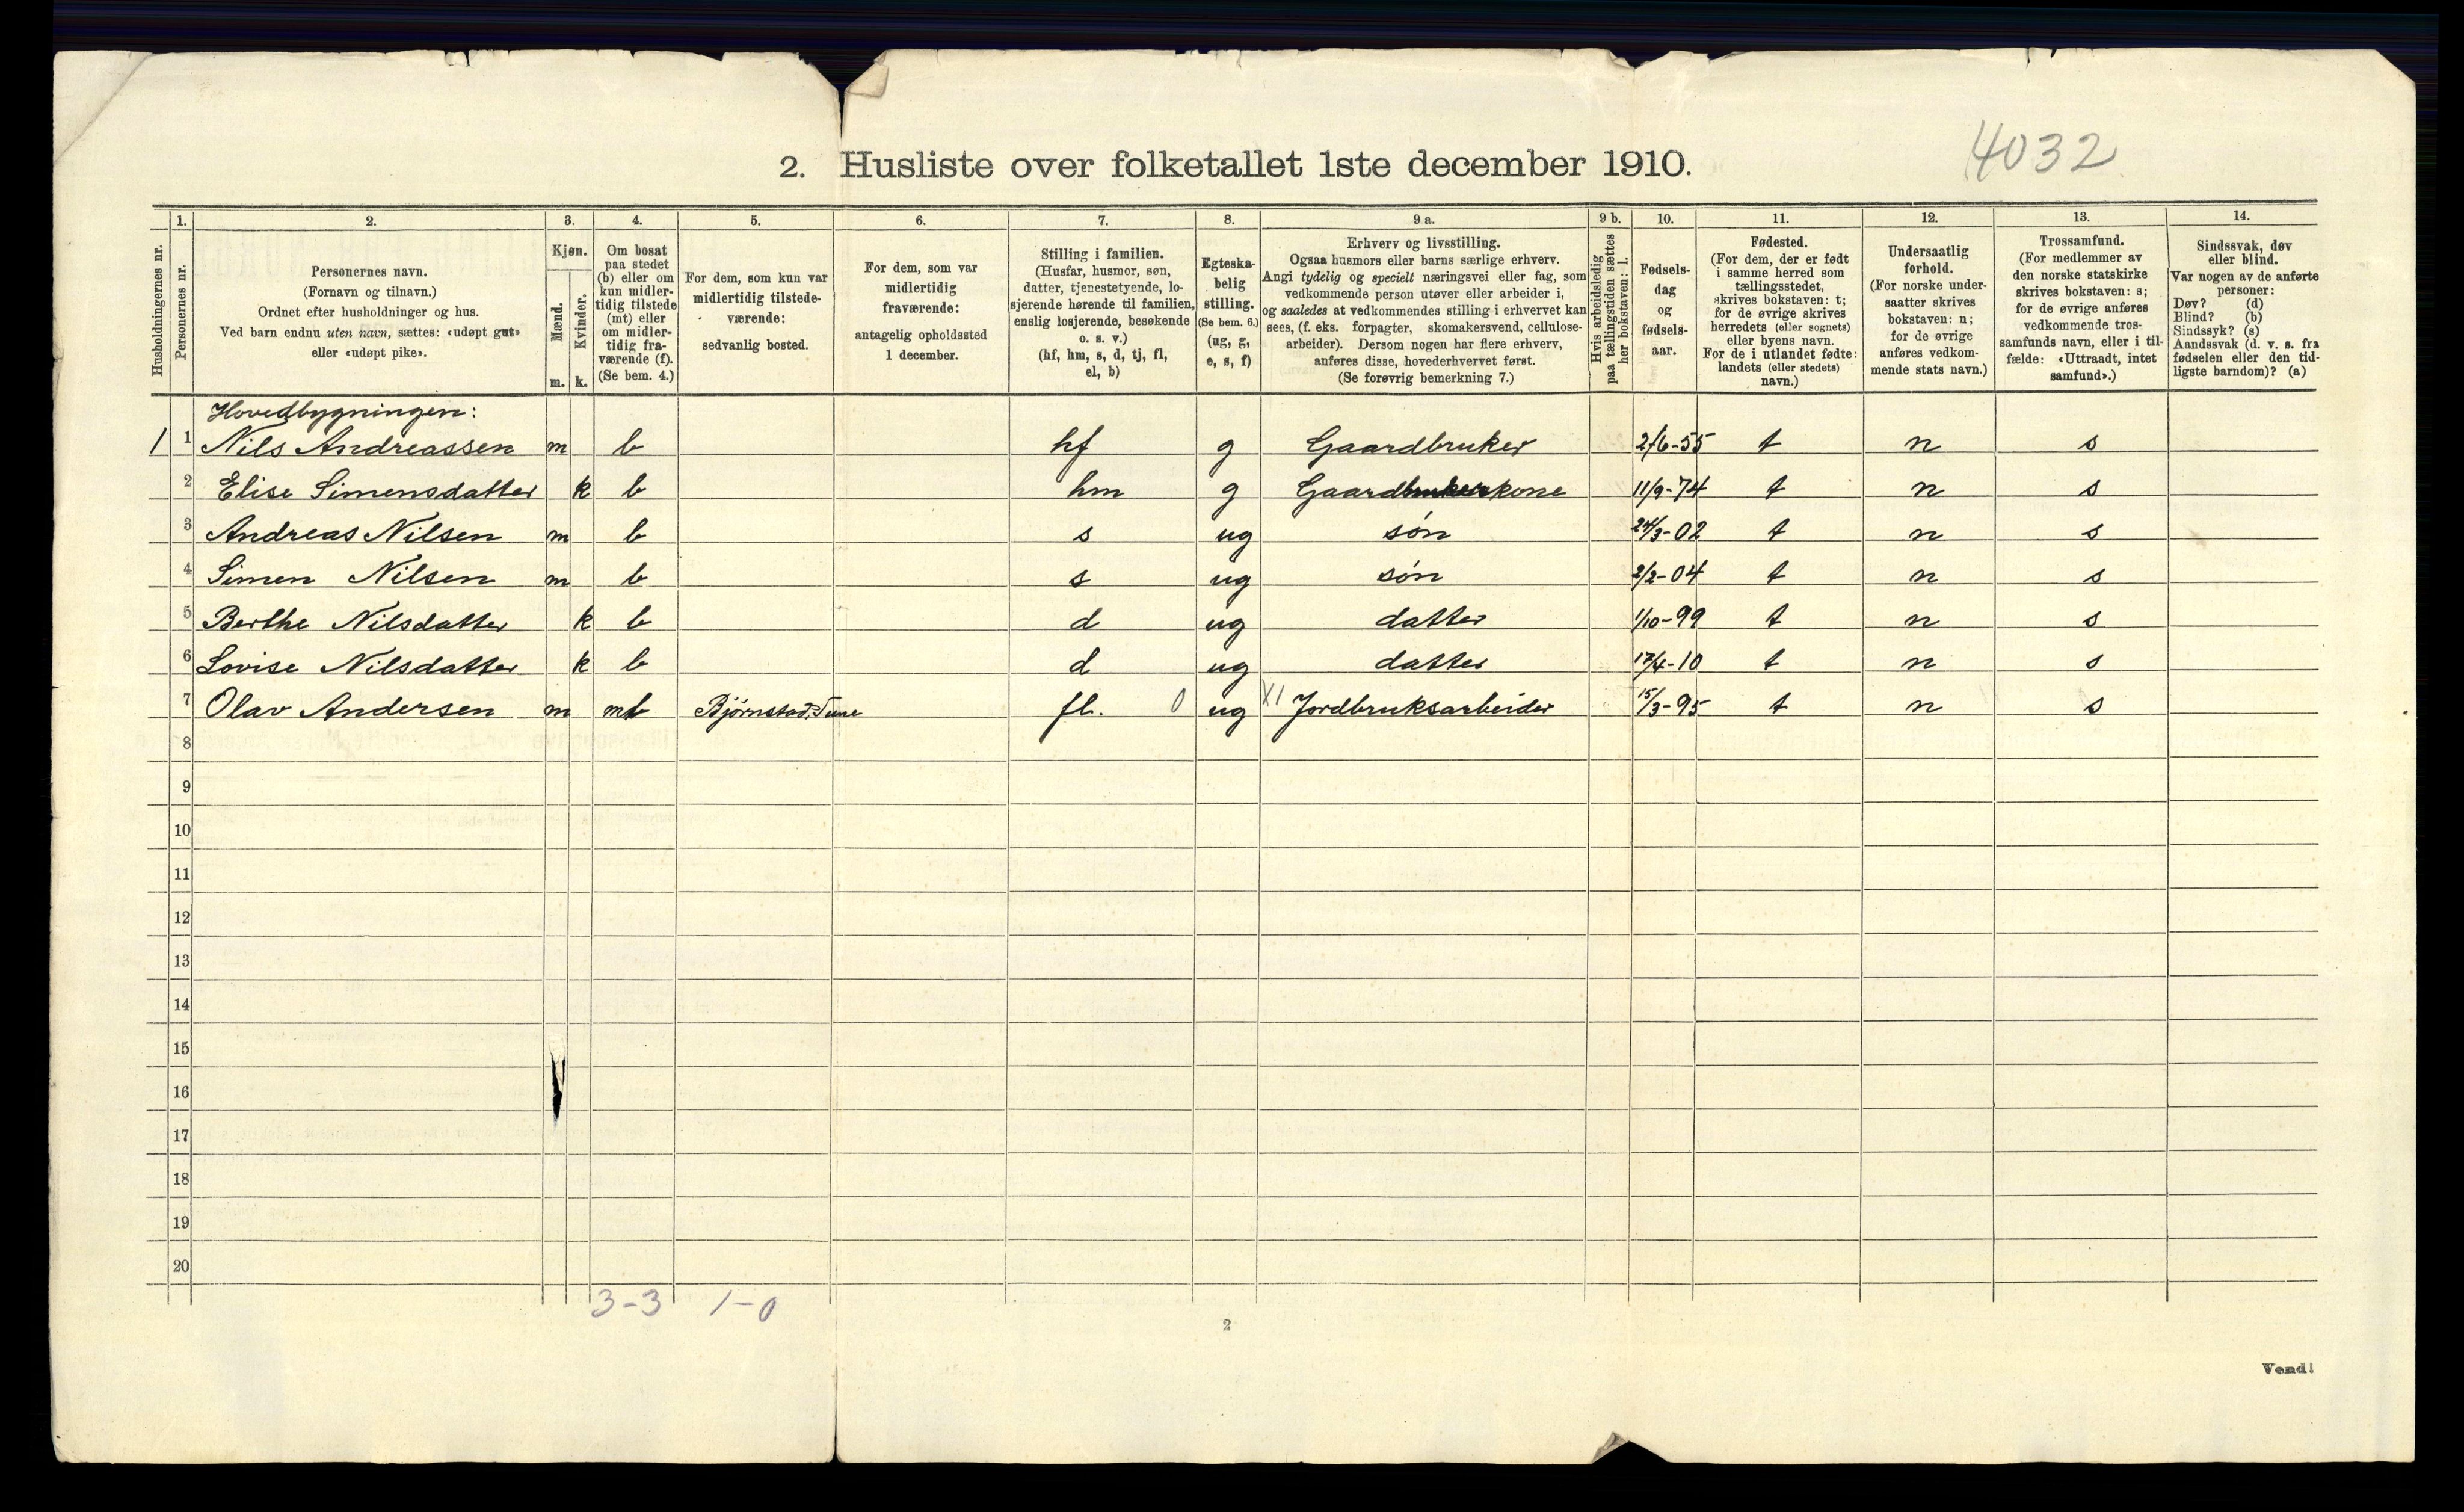 4032
2. Husliste over folketallet 1ste december 1910.
Husholdningernes nr.
1.
Personernes nr.
2.
Personernes navn.
(Fornavn og tilnavn.)
Ordnet efter husholdninger og hus.
Ved barn endnu uten navn, sættes: «udøpt gut»
eller «udøpt pike».
3.
Kjøn.
Mænd.
Kvinder.
m.
k.
4.
Om bosat
paa stedet
(b) eller om
kun midler-
tidig tilstede
(mt) eller
om midler-
tidig fra-
værende (f).
(Se bem. 4.)
5.
For dem, som kun var
midlertidig tilstede-
værende:
sedvanlig bosted.
6.
For dem, som var
midlertidig
fraværende:
antagelig opholdssted
1 december.
7.
Stilling i familien.
(Husfar, husmor, søn,
datter, tjenestetyende, lo-
sjerende hørende til familien,
enslig losjerende, besøkende
o. s. v.)
(hf, hm, s, d, tj, fl,
el, b)
8.
Egteska-
belig
stilling.
(Se bem. 6.)
(ug, g,
e, s, f)
9 a.
Erhverv og livsstilling.
Ogsaa husmors eller barns særlige erhverv.
Angi tydelig og specielt næringsvei eller fag, som
vedkommende person utøver eller arbeider i,
og saaledes at vedkommendes stilling i erhvervet kan
sees, (f. eks. forpagter, skomakersvend, cellulose-
arbeider). Dersom nogen har flere erhverv,
anføres disse, hovederhvervet først.
(Se forøvrig bemerkning 7.)
9 b.
Hvis arbeidsledig
paa tællingstiden sættes
her bokstaven: l.
10.
Fødsels-
dag
og
fødsels-
aar.
11.
Fødested.
(For dem, der er født
i samme herred som
tællingsstedet,
skrives bokstaven: t;
for de øvrige skrives
herredets (eller sognets)
eller byens navn.
For de i utlandet fødte:
landets (eller stedets)
navn.)
12.
Undersaatlig
forhold.
(For norske under-
saatter skrives
bokstaven: n;
for de øvrige
anføres vedkom-
mende stats navn.)
13.
Trossamfund.
(For medlemmer av
den norske statskirke
skrives bokstaven: s;
for de øvrige anføres
vedkommende tros-
samfunds navn, eller i til-
fælde: «Uttraadt, intet
samfund».)
14.
Sindssvak, døv
eller blind.
Var nogen av de anførte
personer:
Døv? (d)
Blind? (b)
Sindssyk? (s)
Aandssvak (d. v. s. fra
fødselen eller den tid-
ligste barndom)? (a)
Hovedbygningen:
1 1 Nils Andreassen m b hf g Gaardbruker 2/6-55 t n s
2 Elise Simensdatter k b hm g Gaardbrukerkone 11/9-74 t n s
3 Andreas Nilsen m b s ug søn 24/3-02 t n s
4 Simen Nilsen m b s ug søn 2/2-04 t n s
5 Berthe Nilsdatter k b d ug datter 1/10-99 t n s
6 Lovise Nilsdatter k b d ug datter 17/4-10 t n s
7 Olav Andersen m mt Bjørnstad, Tune fl. 0 ug XI Jordbruksarbeider 15/3-95 t n s
8
9
10
11
12
13
14
15
16
17
18
19
20
3-3 1-0
2
Vend!